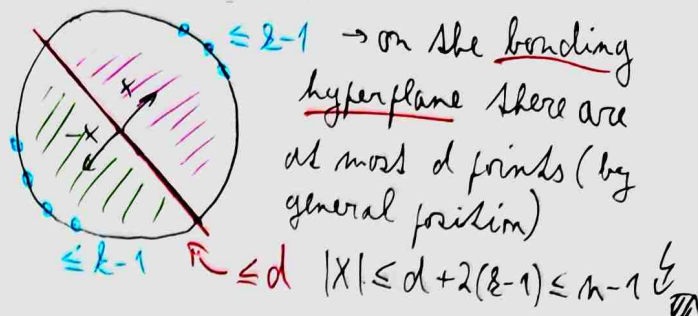 ≤ k-1 → on the bonding
hyperplane there are
at most d points (by
general position)
x
-x
≤ k-1
≤ d |X| ≤ d+2(k-1) ≤ n-1 ↯